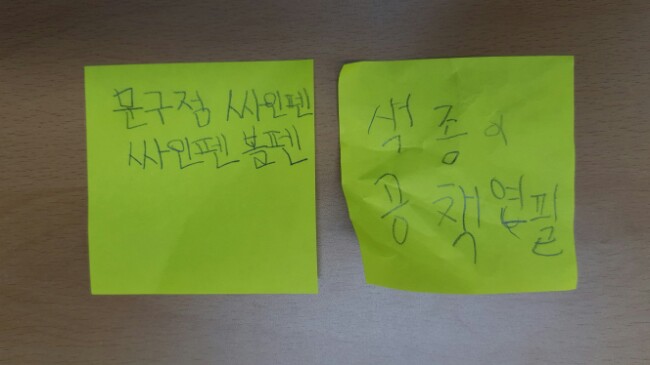 문구점 싸인펜
싸인펜 볼펜
색종이
공책연필